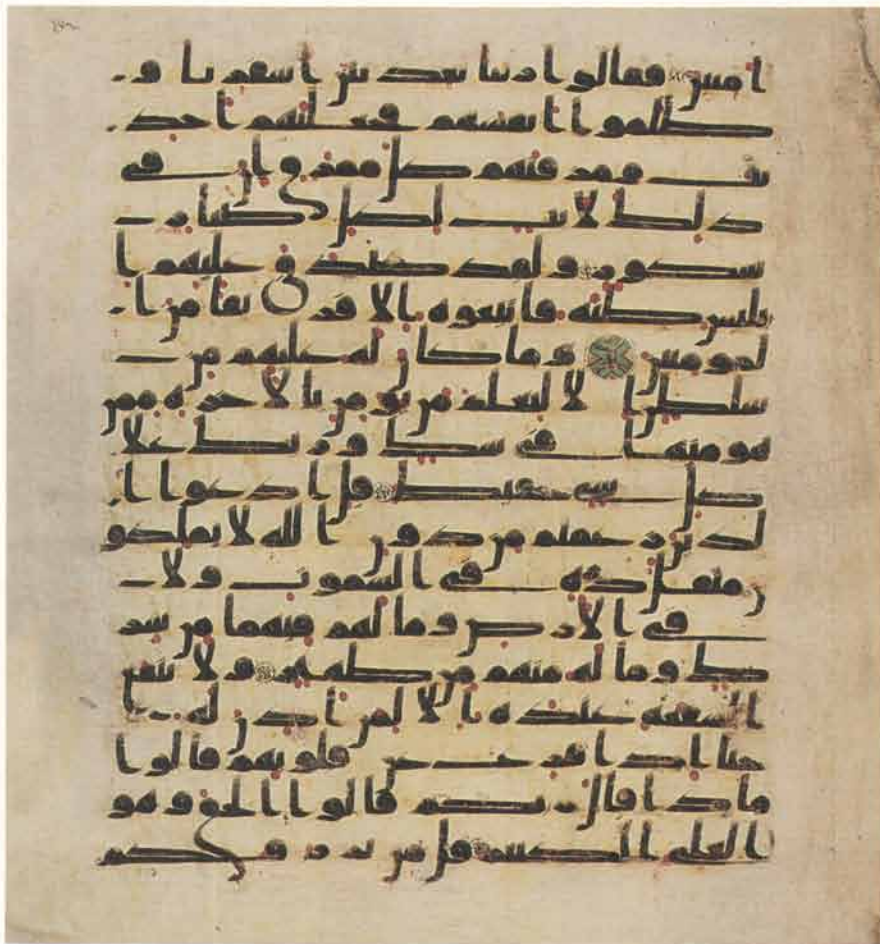 امنين فقالوا ربنا بعد بين اسفرنا و
ظلموا انفسهم فجعلنهم احد
يث ومزقنهم كل ممزق ان في
ذلك لايت لكل صبار
شكور ولقد صدق عليهم ا
بليس ظنه فاتبعوه الا فريقا من ا
لمومنين وما كان له عليهم من
سلطن الا لنعلم من يومن بالاخرة ممن
هو منها في شك وربك علا
كل شي حفيظ قل ادعوا ا
لذين زعمتم من دون الله لا يملكو
ن مثقال ذرة في السموت ولا
في الارض وما لهم فيهما من شر
ك وما له منهم من ظهير ولا تنفع
الشفعة عنده الا لمن اذن له
حتا اذا فزع عن قلوبهم قالوا
ماذا قال ربكم قالوا الحق وهو
العلي الكبير قل من يرزقكم